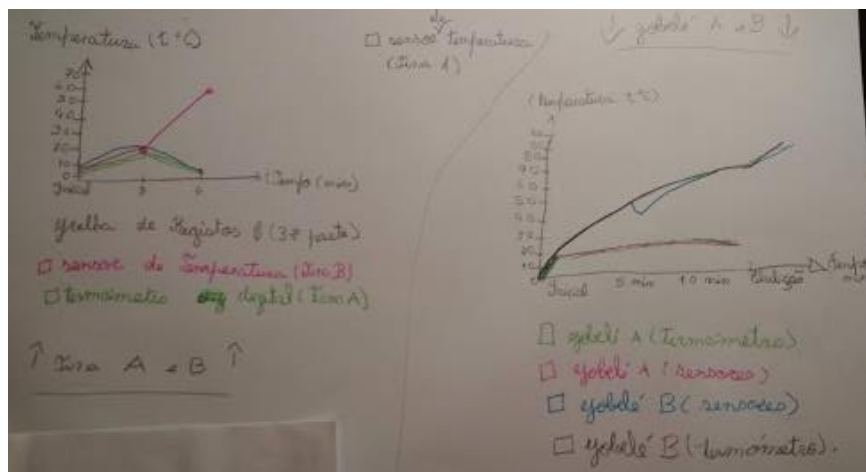 Temperatura (t °C)
70
60
50
40
30
20
10
0
Inicial 3 6 Tempo (min)
Grelha de Registos 6 (3ª parte)
sensor de Temperatura (Tina B)
termómetro digital (Tina A)
↑ Tina A e B ↑
sensor de temperatura
(Tina A)
↓ gobelé A e B ↓
(Temperatura t °C)
50
40
30
20
10
0
Inicial 5 min 10 min Tempo
gobelé A (termómetro)
gobelé A (sensores)
gobelé B (sensores)
gobelé B (termómetro).